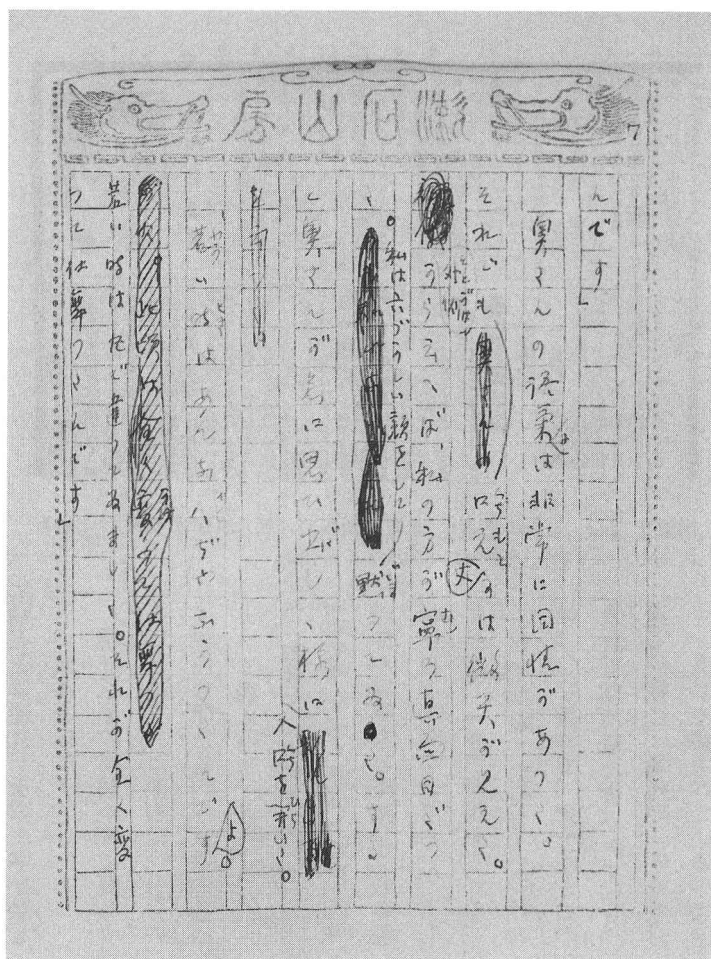 漱石山房
7
んです」
奥さんの語氣には非常に同情があつた。
それでも口元丈には微笑が見えた。
外側から云へば、私の方が寧ろ真面目だつ
た。私は六づかしい顔をして黙つてゐた。す る
と奥さんが急に思ひ出した様に又口を開いた。
「若い時はあんな人ぢやなかつたんですよ。
若い時は丸で違つてゐました。それが全く變
つて仕舞つたんです」